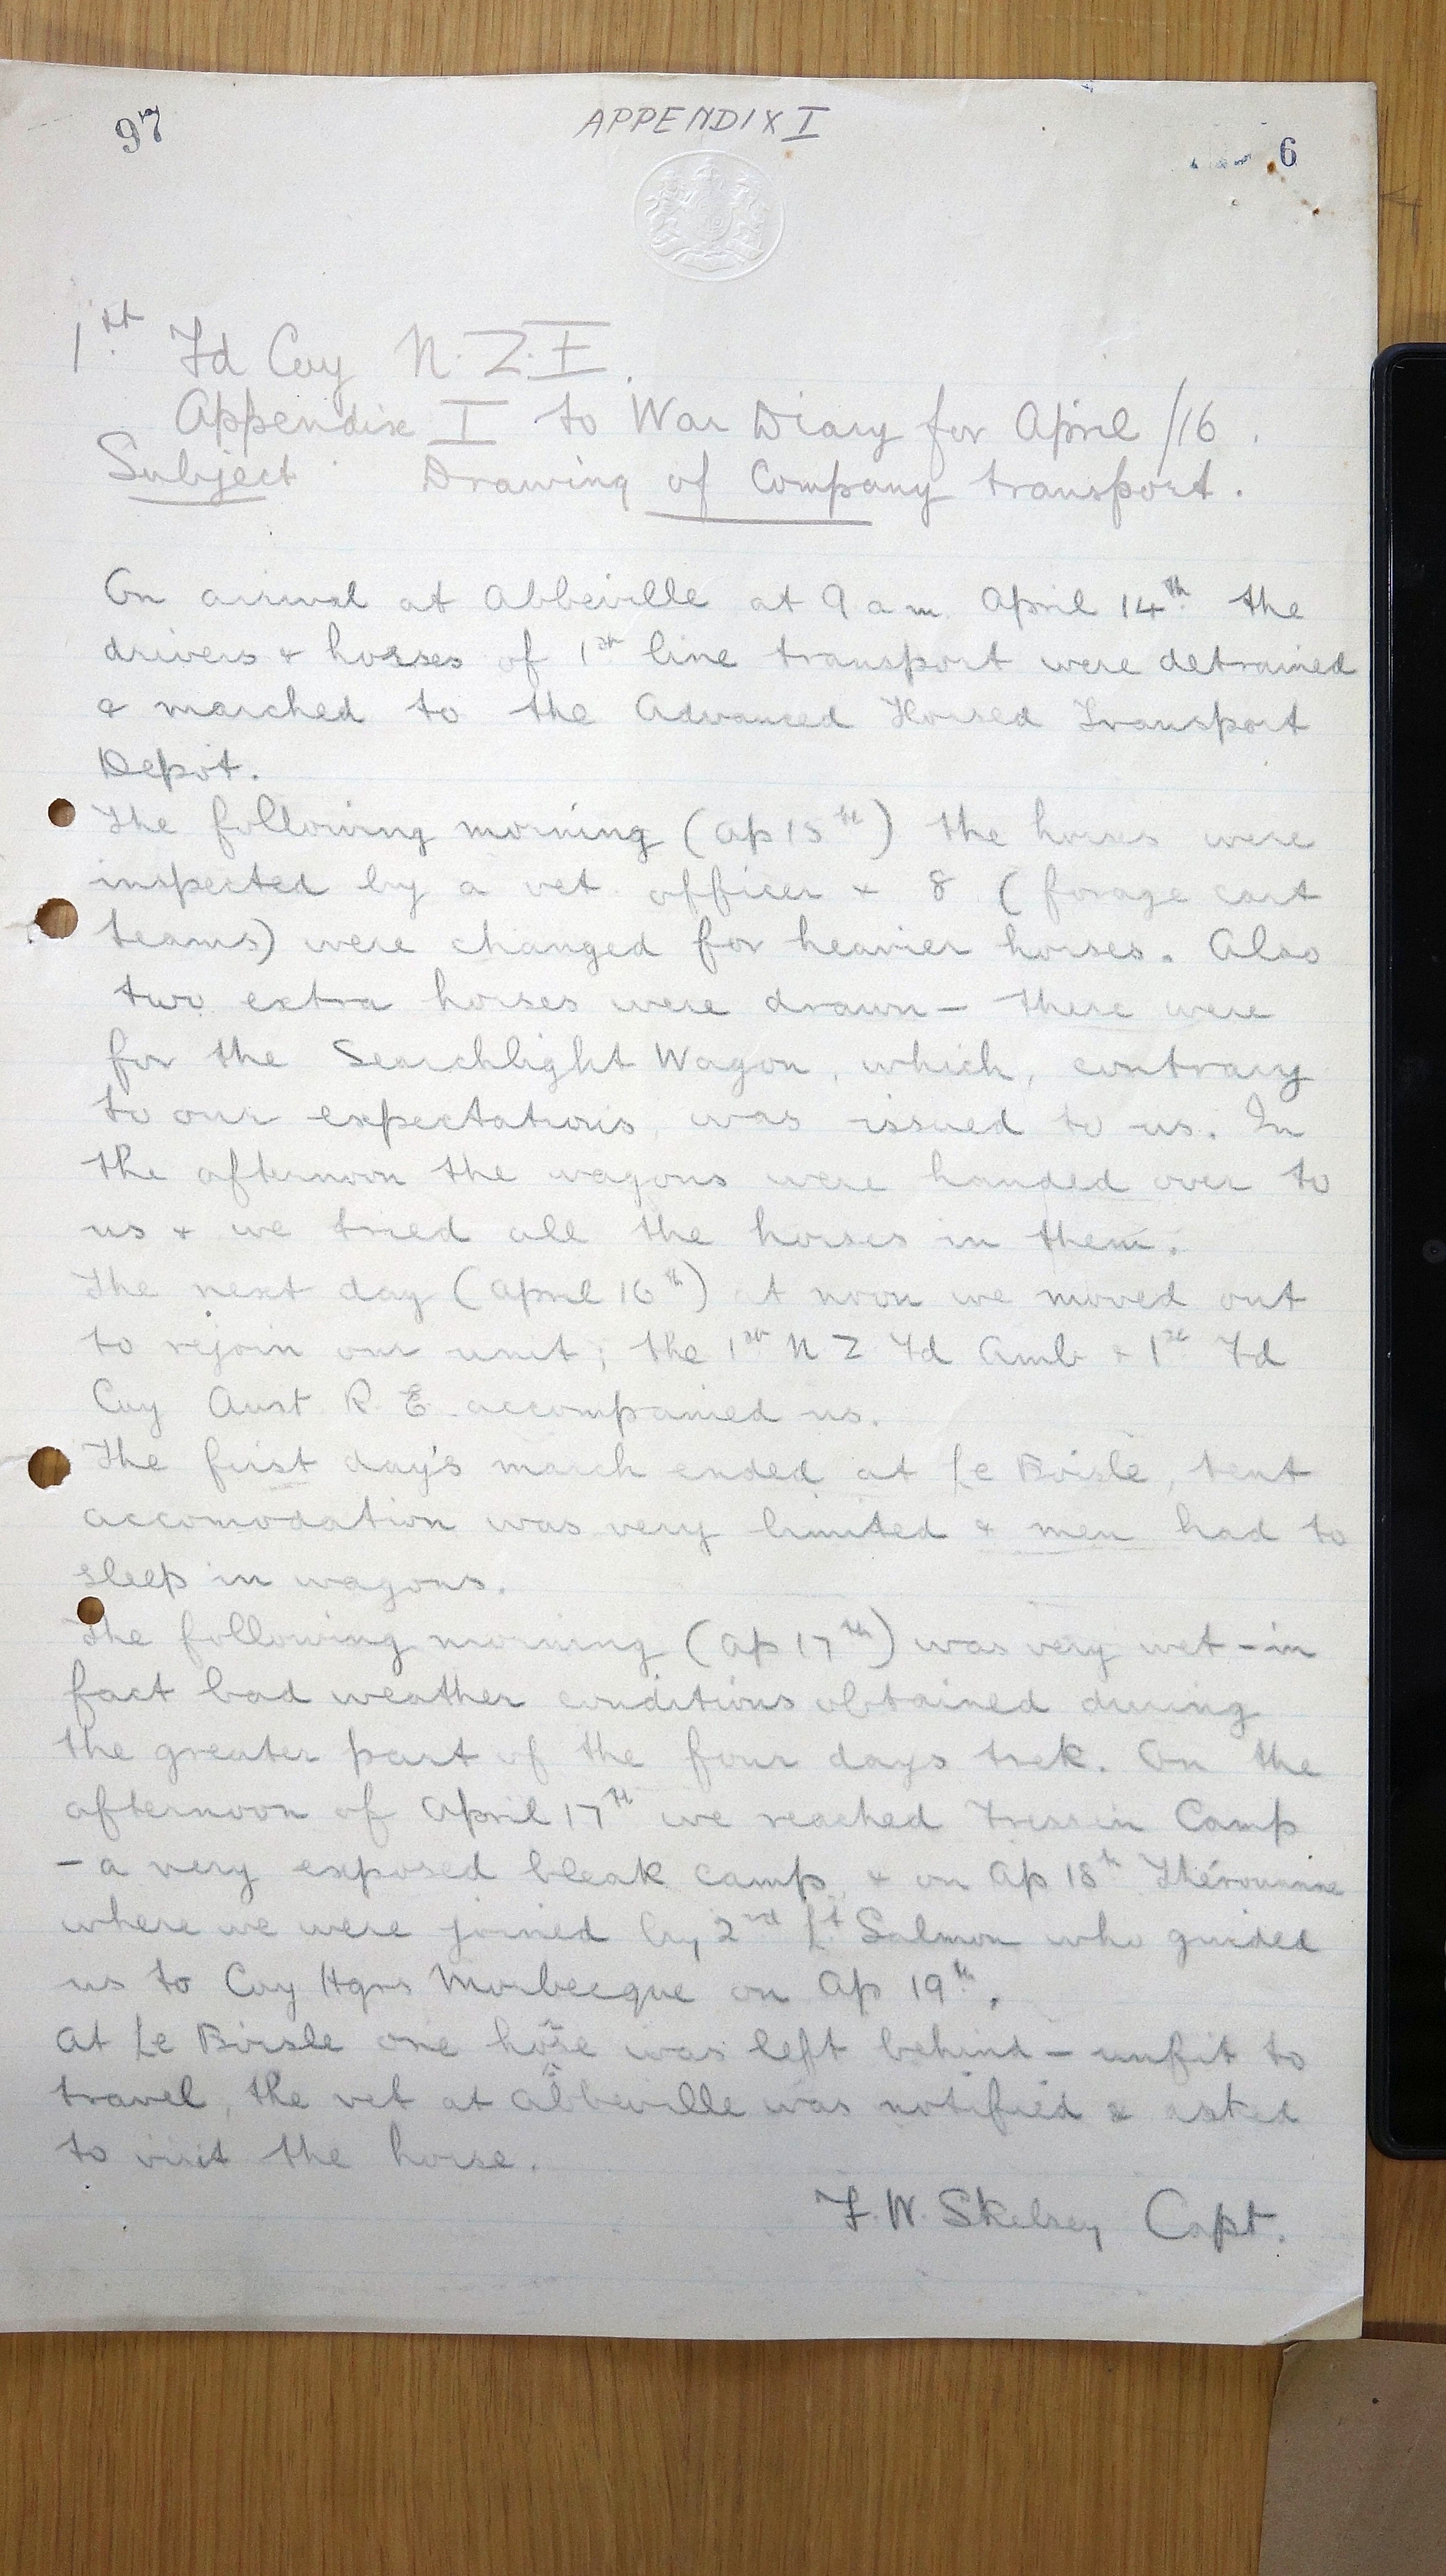 97
APPENDIX I
6
1st Fd Coy N.Z.E.
Appendix I to War Diary for April /16.
Subject Drawing of Company transport.
On arrival at Abbeville at 9 am April 14th the
drivers & horses of 1st line transport were detrained
& marched to the Advanced Horsed Transport
Depot.
The following morning (Ap 15th) the horses were
inspected by a vet. officer & 8 (forage cart
teams) were changed for heavier horses. Also
two extra horses were drawn - these were
for the Searchlight Wagon, which, contrary
to our expectations, was issued to us. In
the afternoon the wagons were handed over to
us & we tried all the horses in them.
The next day (April 16th) at noon we moved out
to rejoin our unit; the 1st N Z Fd Amb & 1st Fd
Coy Aust R.E. accompanied us.
The first day's march ended at Le Boisle, tent
accomodation was very limited & men had to
sleep in wagons.
The following morning (Ap 17th) was very wet - in
fact bad weather conditions obtained during
the greater part of the four days trek. On the
afternoon of April 17th we reached Fressin Camp
- a very exposed bleak camp, & on Ap 18th Thérouanne
where we were joined by 2nd Lt Salmon who guided
us to Coy Hqrs Morbecque on Ap 19th.
At Le Boisle one horse was left behind - unfit to
travel, the vet at Abbeville was notified & asked
to visit the horse.
F. W. Skelsey Capt.